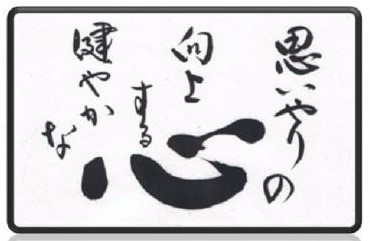 思いやりの
向上する
健やかな
心